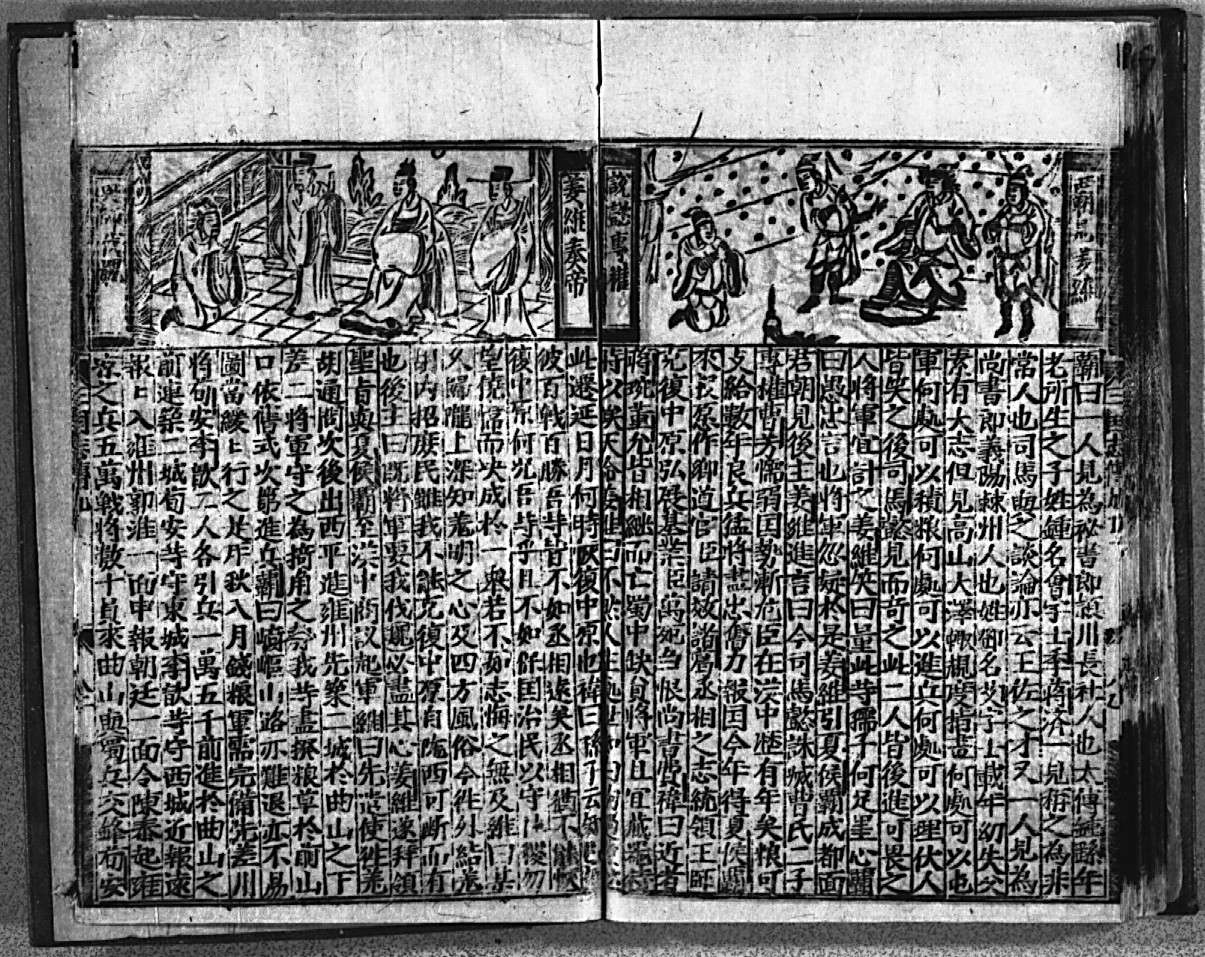 霸曰一人見為秘書郎潁川長社人也太傅鍾繇年
老所生之子姓鍾名會字士季蔣濟一見稱之為非
常人也司馬與之談論亦云王佐之才又一人見為
尚書郎義陽棘州人也姓鄧名艾字士載年幼失父
素有大志但見高山大澤輒規度指畫何處可以屯
軍何處可以積粮何處可以進兵何處可以埋伏人
皆笑之後司馬懿見而奇之此二人皆後進可畏之
人將軍宜計之姜維笑曰量此等孺子何足罣心霸
曰愚出忠言也將軍勿疑於是姜維引夏侯霸成都面
君朝見後主姜維進言曰今司馬懿誅滅曹氏二子
專權曹芳懦弱国勢漸危臣在漢中歴有年矣粮可
支給數年良兵猛將盡出奮力報国今年得夏侯霸
來長原作鄉道官臣請效諸葛丞相之志統領王師
克復中原弘啟基業臣萬死勿恨尚書費禕曰近者
蔣琬董允皆相繼而亡蜀中缺員將軍且宜藏器待
時以俟天命姜維曰不然人生
說禕專權
姜維奏帝
此遷延日月何時恢復中原也禕曰孫子云知己知
彼百戰百勝吾等皆不如丞相遠矣丞相猶不能恢
復中原何況吾等乎且不如保国治民以守社稷勿
望僥倖而決成於一舉若不如志悔之無及維曰某
久歸隴上深知羌明之心及四方風俗今徃外結羌
胡内招庶民雖我不能克復中原自隴西可断而有
也後主曰既將軍要我伐魏必盡其心姜維遂拜領
聖旨與夏侯霸至漢中商議起軍維曰先遣使徃羌
胡通問次後出西平進雍州先築二城於曲山之下
差二將軍守之為掎角之勢我等盡撥粮草於前山
口依舊式次第進兵霸曰崎嶇山路亦难退亦不易
圖當緩匕行之是年秋八月錢粮軍需完備先差川
將荀安李歆二人各引兵一萬五千前進於曲山之
前連築二城荀安等守東城李歆等守西城近報遠
報匕入雍州郭淮一面申報朝廷一面令陳泰起雍
凉之兵五萬戰將数十員來曲山與蜀兵交鋒荀安